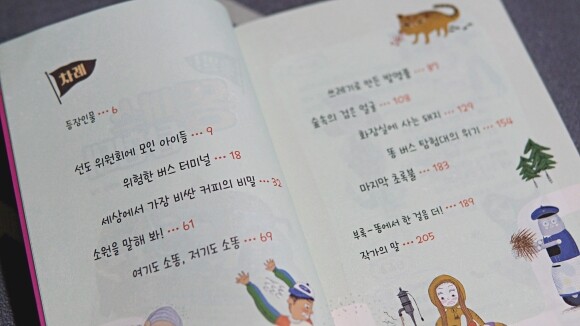 차례
등장인물 ··· 6
선도 위원회에 모인 아이들 ··· 9
위험한 버스 터미널 ··· 18
세상에서 가장 비싼 커피의 비밀 ··· 32
소원을 말해 봐! ··· 61
여기도 소똥, 저기도 소똥 ··· 69
쓰레기로 만든 발명품 ··· 87
숲속의 검은 얼굴 ··· 108
화장실에 사는 돼지 ··· 129
똥 버스 탐험대의 위기 ··· 154
마지막 초록불 ··· 183
부록-똥에서 한 걸음 더! ··· 189
작가의 말 ··· 205